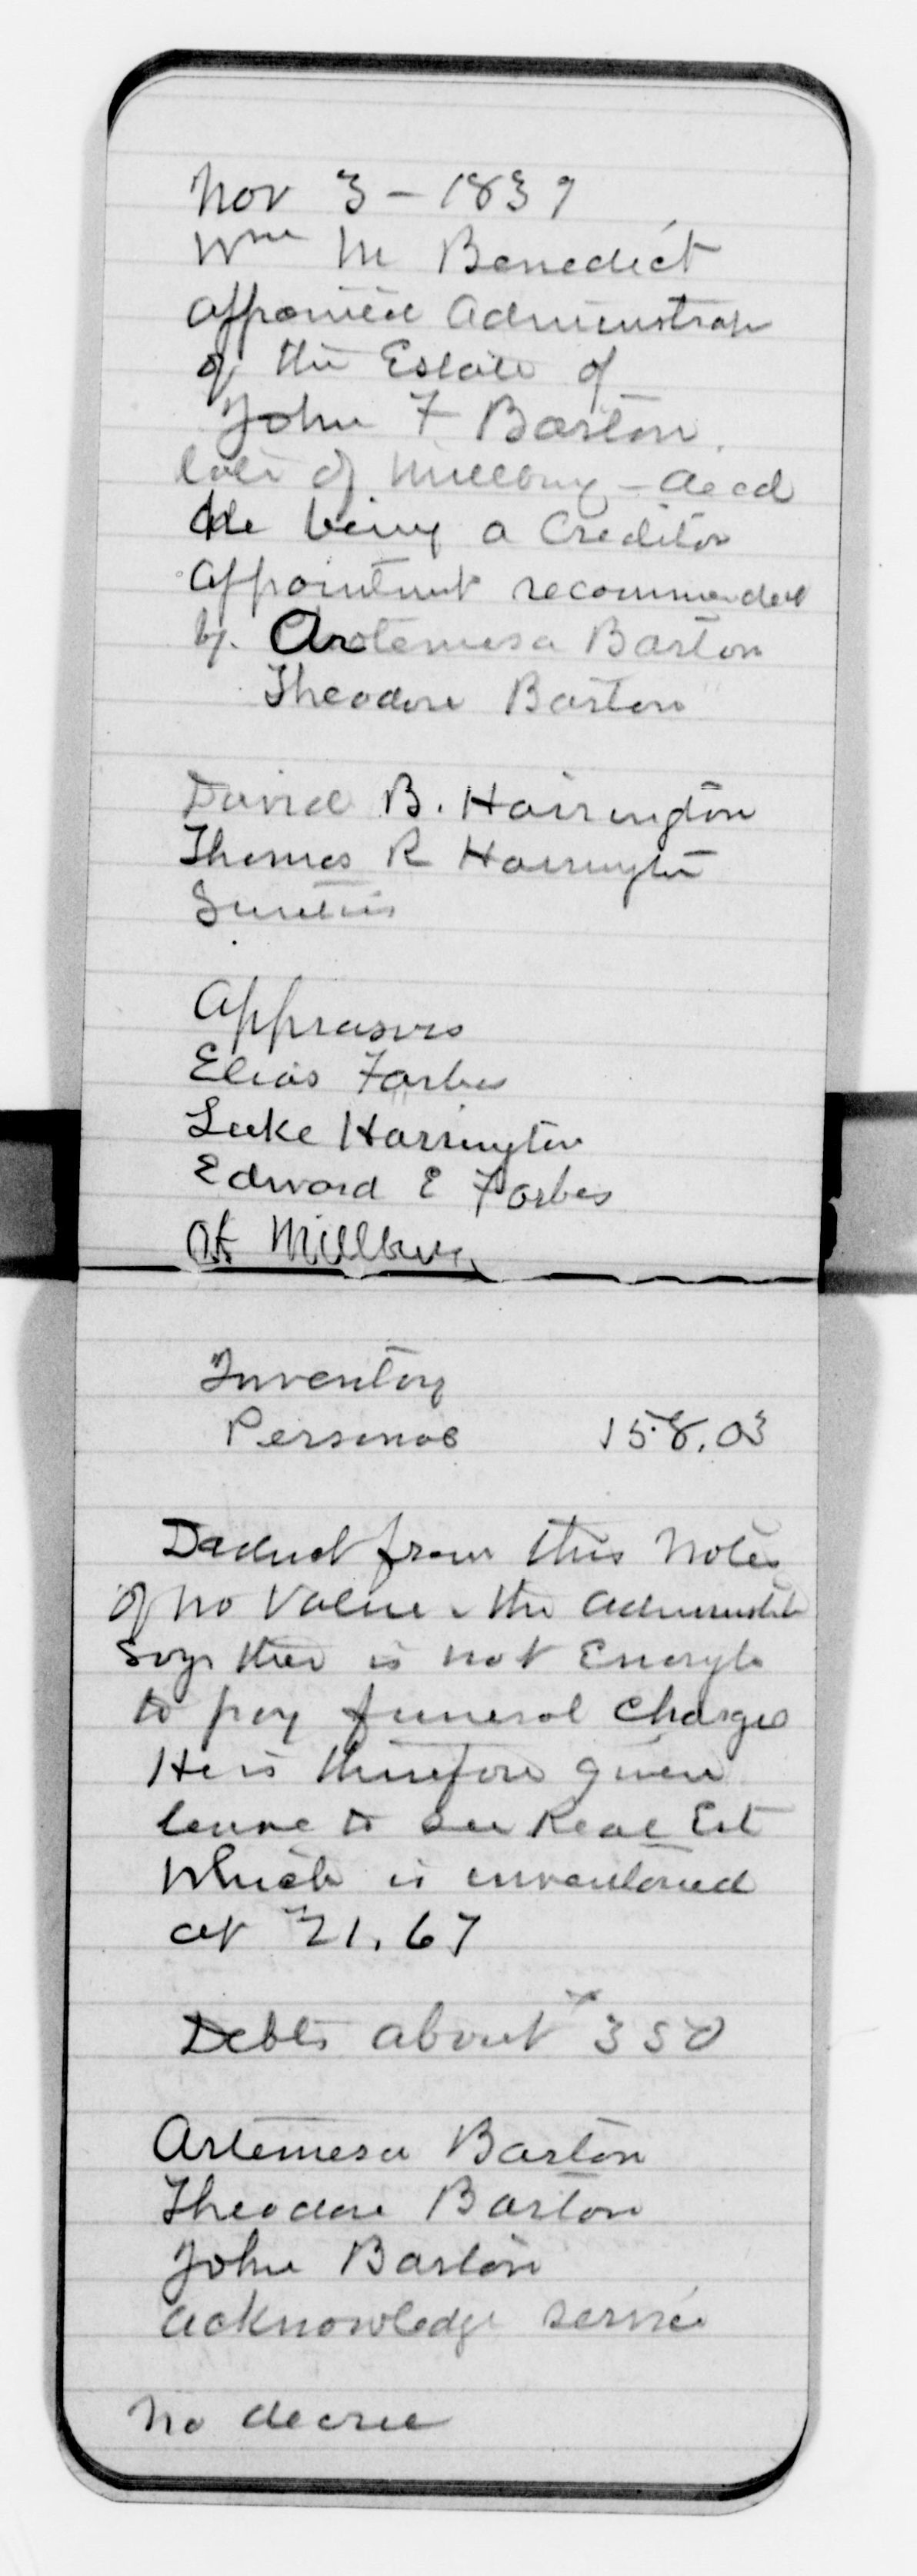 Nov 3 - 1837
Wm M Benedict
appointed Administrator
of the Estate of
John F Barton.
late of Millbury - decd
He being a Creditor
Appointment recommended
by. Artemesa Barton
Theodore Barton
David B. Harrington
Thomas R Harrington
Sureties
Appraisers
Elias Forbes
Luke Harrington
Edward E Forbes
At Millbury
Inventory
Personal 158.03
Deduct from this Notes
of no Value & the administr
says there is not Enough
to pay funeral charges
He is therefore given
leave to see Real Est
Which is inventoried
at 21.67
Debts about 350
Artemesa Barton
Theodore Barton
John Barton
acknowledge service
No decree